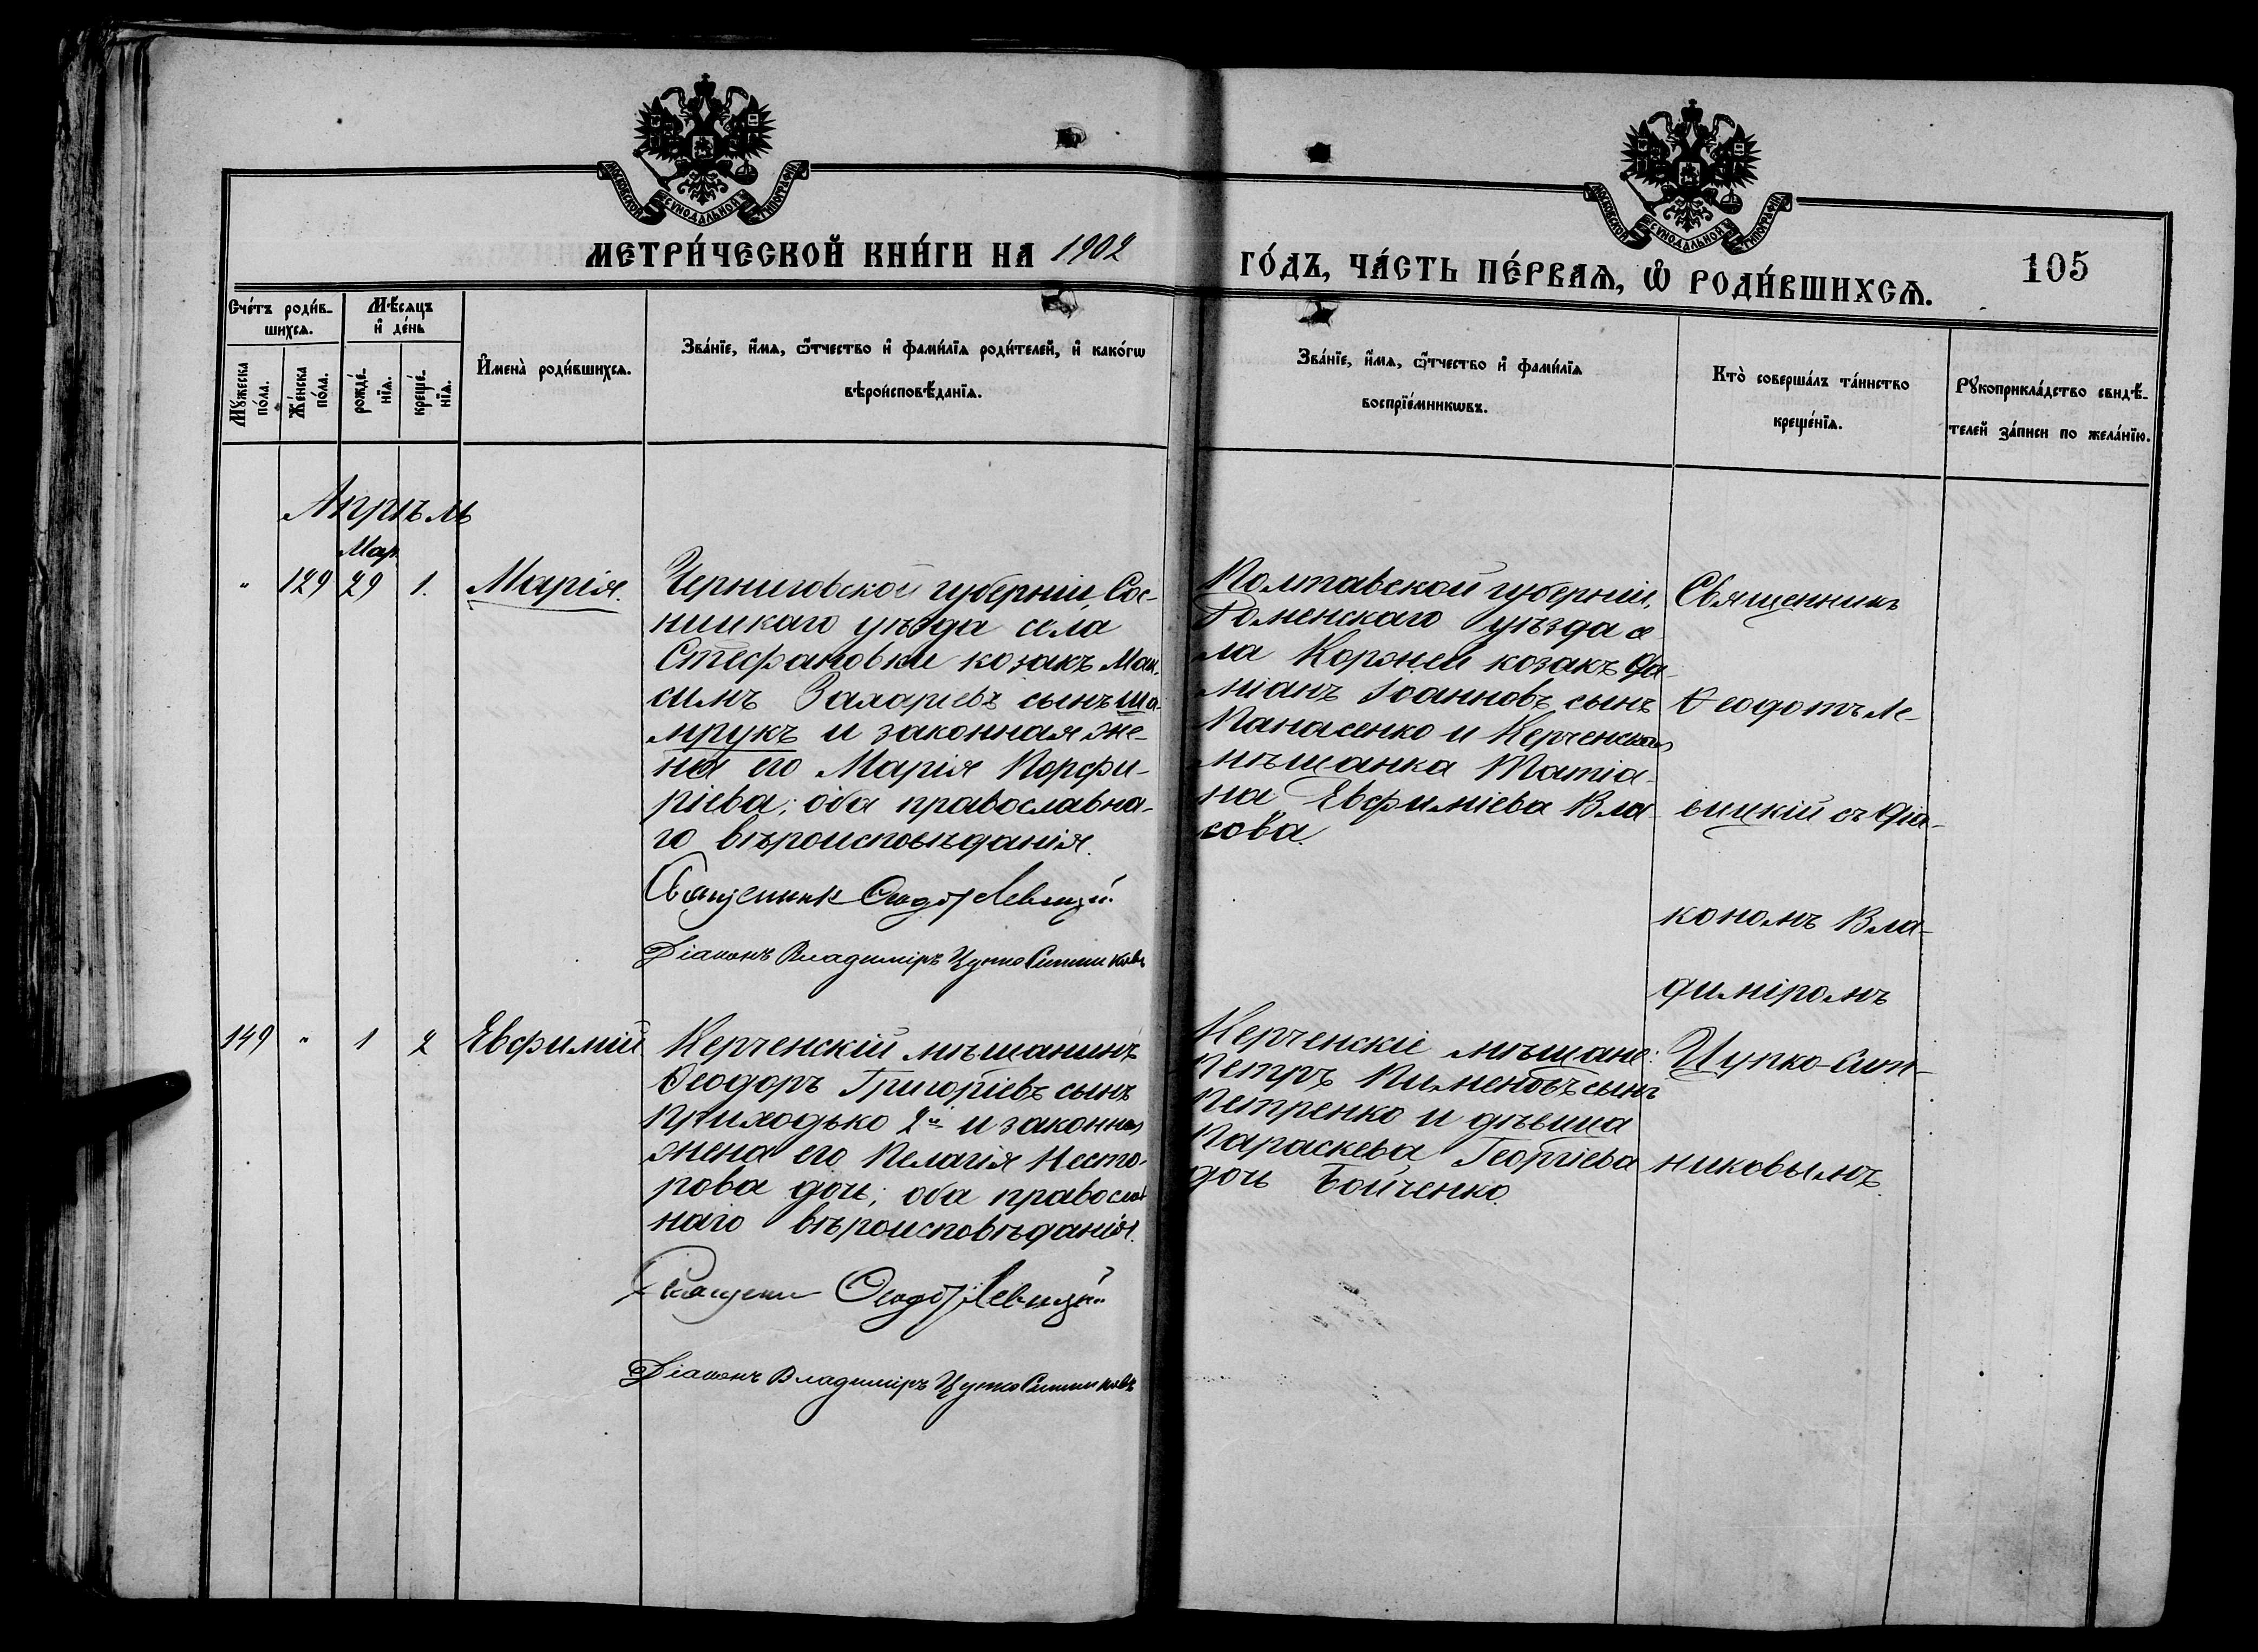 МОСКОВСКОЙ СУНОДАЛЬНОЙ ТИПОГРАФІИ
МОСКОВСКОЙ СУНОДАЛЬНОЙ ТИПОГРАФІИ
МЕТРИ́ЧЕСКОЙ КНИ́ГИ НА 1902
ГО́ДЪ, ЧА́СТЬ ПЕ́РВАѦ, Ѡ҆ РОДИ́ВШИХСѦ.
105
Сче́тъ роди́в-
шихсѧ.
Мꙋ́жеска
по́ла.
Же́нска
по́ла.
Мѣ́сѧцъ
и҆ де́нь
рожде́-
нїѧ.
креще́-
нїѧ.
И҆мена̀ роди́вшихсѧ.
Зва́нїе, и҆́мѧ, ѻ҆́тчество и҆ фами́лїѧ роди́телей, и҆ како́гѡ
вѣроисповѣ́данїѧ.
Зва́нїе, и҆́мѧ, ѻ҆́тчество и҆ фами́лїѧ
воспрїе́мникѡвъ.
Кто̀ соверша́лъ та́инство
креще́нїѧ.
Рꙋкоприкла́дство свидѣ́-
телей за́писи по жела́нїю.
Апрѣль
Мар.
" 129 29 1. Марія.
Черниговской губерніи, Сос-
ницкаго уѣзда села
Стефановки козакъ Мак-
симъ Захаріевъ сынъ Ша-
мрукъ и законная же-
на его Марія Порфи-
ріева; оба православна-
го вѣроисповѣданія.
Священник Феодот Левицкій
Діаконъ Владиміръ Цупко Ситниковъ
Полтавской губерніи,
Роменскаго уѣзда се
ла Коржей козакъ Да-
міанъ Іоанновъ сынъ
Панасенко и Керченская
мѣщанка Татіа-
на Евфиміева Вла-
сова.
Священникъ
Ѳеодотъ Ле-
вицкій съ діа-
кономъ Вла-
диміромъ
Цупко-Сит-
никовымъ.
149 " 1 2 Евфимій
Керченскій мѣщанинъ
Ѳеодоръ Григоріевъ сынъ
Приходько 2й и законная
жена его Пелагія Несто-
рова дочь; оба православ
наго вѣроисповѣданія.
Священник Феодот Левицкій
Діаконъ Владиміръ Цупко Ситниковъ
Керченскіе мѣщане:
Петръ Пименовъ сынъ
Петренко и дѣвица
Параскева Георгіева
дочь Бойченко.